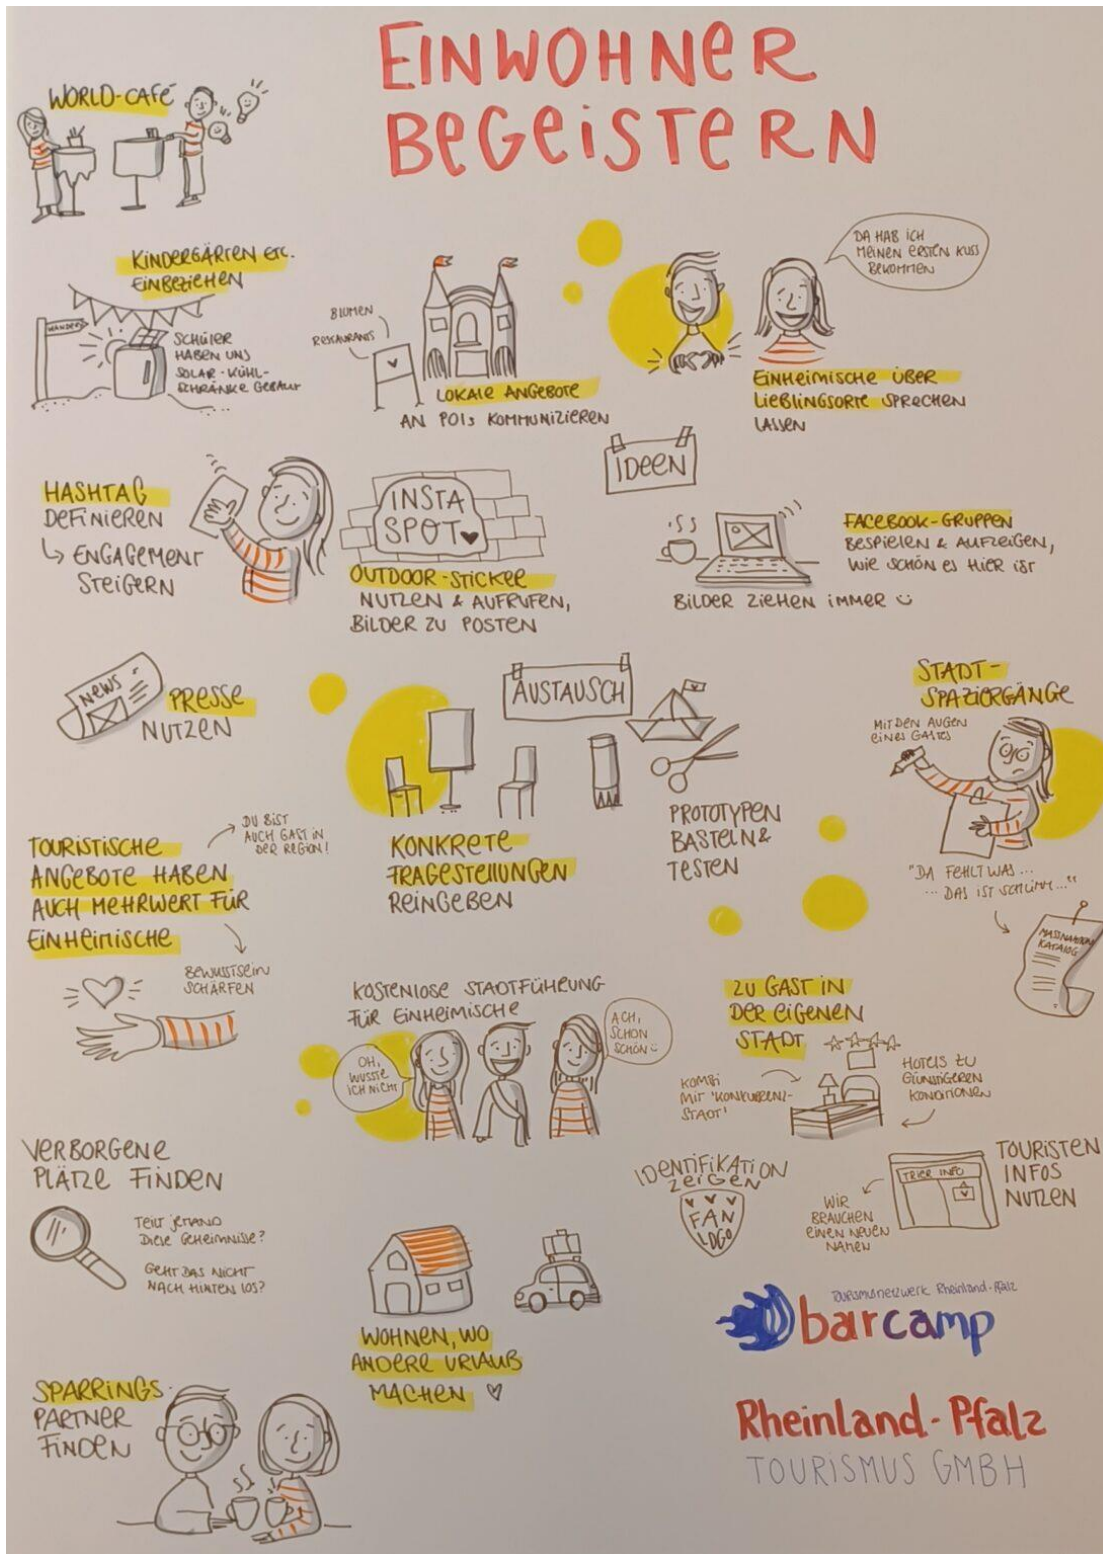 EINWOHNER
BEGEISTERN
WORLD-CAFÉ
KINDERGÄRTEN ETC.
EINBEZIEHEN
WANDERN
SCHÜLER
HABEN UNS
SOLAR-KÜHL-
SCHRÄNKE GEBAUT
BLUMEN
RESTAURANTS
LOKALE ANGEBOTE
AN POIs KOMMUNIZIEREN
DA HAB ICH
MEINEN ERSTEN KUSS
BEKOMMEN
EINHEIMISCHE ÜBER
LIEBLINGSORTE SPRECHEN
LASSEN
IDEEN
HASHTAG
DEFINIEREN
↳ ENGAGEMENT
STEIGERN
INSTA
SPOT ♥
OUTDOOR-STICKER
NUTZEN & AUFRUFEN,
BILDER ZU POSTEN
FACEBOOK-GRUPPEN
BESPIELEN & AUFZEIGEN,
WIE SCHÖN ES HIER IST
BILDER ZIEHEN IMMER ☺
NEWS
PRESSE
NUTZEN
AUSTAUSCH
KONKRETE
FRAGESTELLUNGEN
REINGEBEN
PROTOTYPEN
BASTELN &
TESTEN
STADT-
SPAZIERGÄNGE
MIT DEN AUGEN
EINES GASTES
"DA FEHLT WAS...
... DAS IST SCHLIMM..."
MASSNAHMEN
KATALOG
TOURISTISCHE
ANGEBOTE HABEN
AUCH MEHRWERT FÜR
EINHEIMISCHE
DU BIST
AUCH GAST IN
DER REGION!
BEWUSSTSEIN
SCHÄRFEN
KOSTENLOSE STADTFÜHRUNG
FÜR EINHEIMISCHE
OH,
WUSSTE
ICH NICHT
ACH,
SCHON
SCHÖN ☺
ZU GAST IN
DER EIGENEN
STADT
KOMBI
MIT 'KONKURRENZ-
STADT'
HOTELS ZU
GÜNSTIGEREN
KONDITIONEN
VERBORGENE
PLÄTZE FINDEN
TEILT JEMAND
DIESE GEHEIMNISSE?
GEHT DAS NICHT
NACH HINTEN LOS?
IDENTIFIKATION
ZEIGEN
FAN
LOGO
TRIER INFO
TOURISTEN
INFOS
NUTZEN
WIR
BRAUCHEN
EINEN NEUEN
NAMEN
WOHNEN, WO
ANDERE URLAUB
MACHEN ♡
SPARRINGS-
PARTNER
FINDEN
Tourismusnetzwerk Rheinland-Pfalz
barcamp
Rheinland-Pfalz
TOURISMUS GMBH